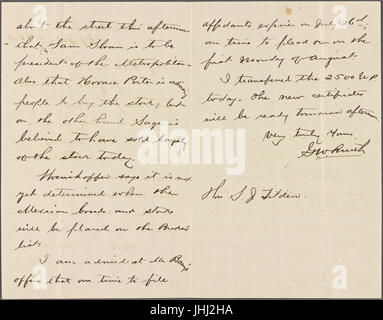 about the street this afternoon
that Sam Sloan is to be
president of the Metropolitan
Also that Horace Porter is advising
people to buy the stock, but
on the other hand Sage is
believed to have sold largely
of the stock today.
says it is not
yet determined when the
bonds and stocks
will be placed on the Brokers
list.
I am advised at the
office that our time to file
affidavits expires on July 26th
our time to plead on the
first Monday of August.
I transferred the 2500 U.P.
today. The new certificates
will be ready tomorrow afternoon.
Very truly Yours,
GWSmith
Hon S. J. Tilden.
alamy
Image ID: JHJ2HA
www.alamy.com